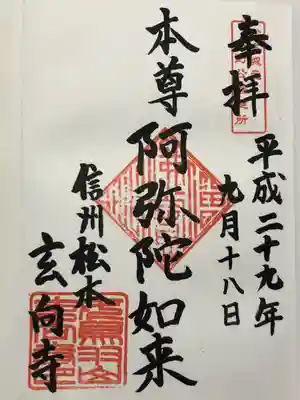 奉拝
平成二十九年
九月十八日
本尊 阿弥陀如来
信州松本
玄向寺